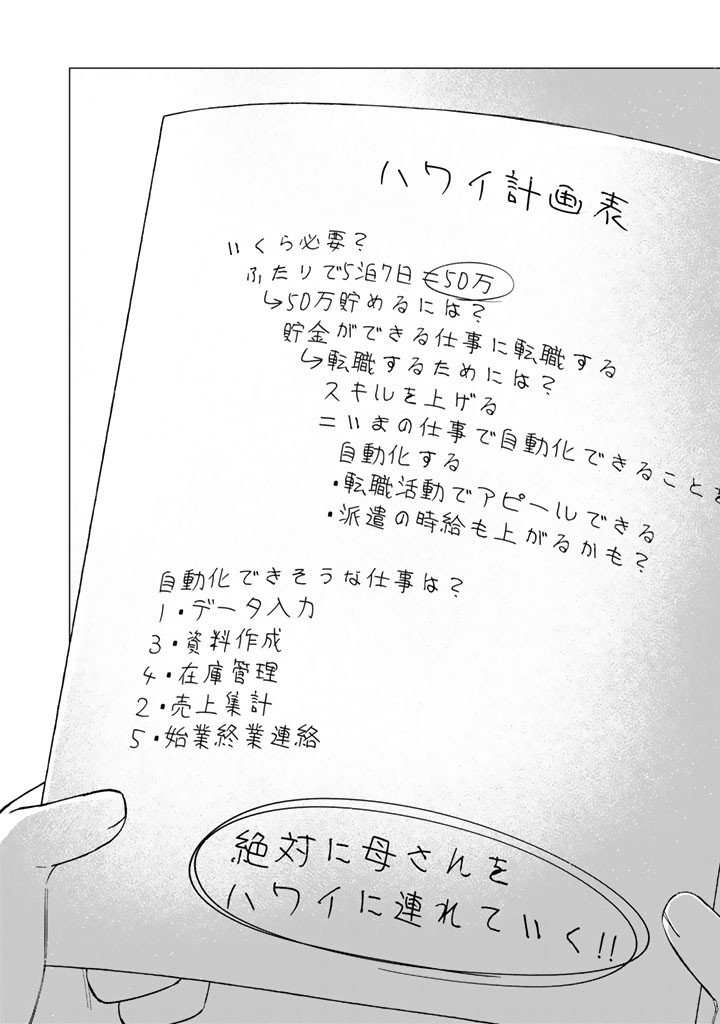 ハワイ計画表
いくら必要?
ふたりで5泊7日=50万
↳50万貯めるには?
貯金ができる仕事に転職する
↳転職するためには?
スキルを上げる
=いまの仕事で自動化できることを
自動化する
・転職活動でアピールできる
・派遣の時給も上がるかも?
自動化できそうな仕事は?
1・データ入力
3・資料作成
4・在庫管理
2・売上集計
5・始業終業連絡
絶対に母さんを
ハワイに連れていく!!